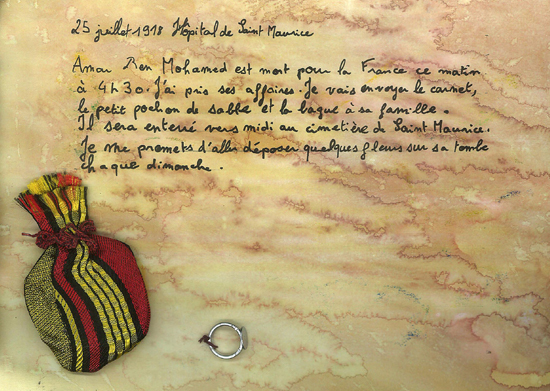 25 juillet 1918 Hôpital de Saint Maurice
Amar Ben Mohamed est mort pour la France ce matin
à 4h30. J'ai pris ses affaires. Je vais envoyer le carnet,
le petit pochon de sable et la bague à sa famille.
Il sera enterré vers midi au cimetière de Saint Maurice.
Je me promets d'aller déposer quelques fleurs sur sa tombe
chaque dimanche.